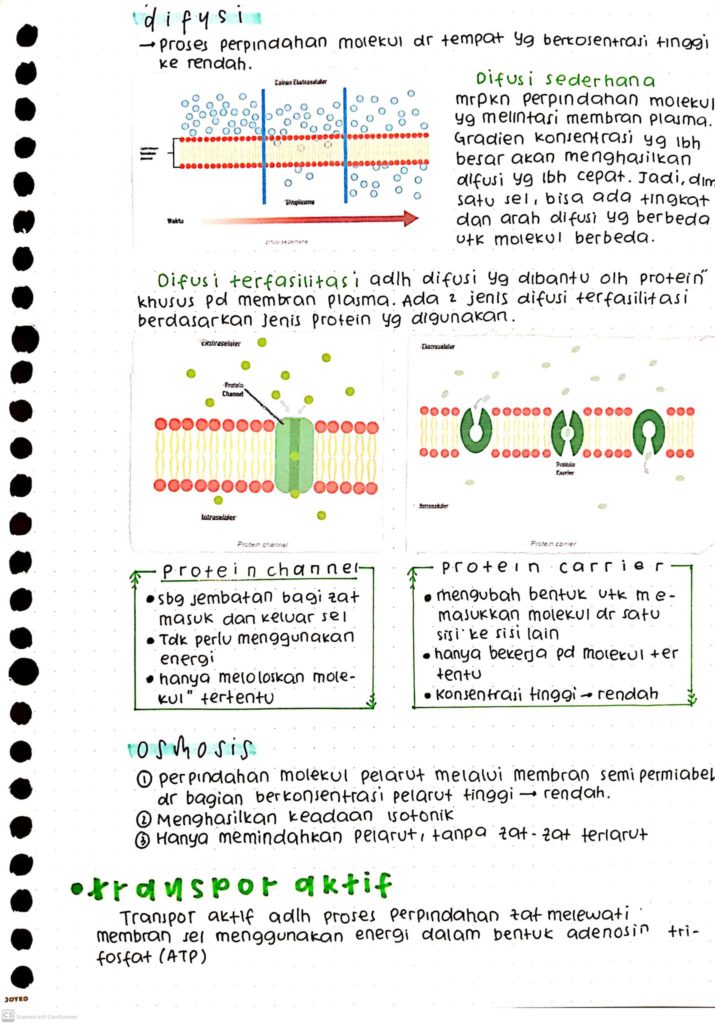 difusi
→ proses perpindahan molekul dr tempat yg berkosentrasi tinggi
ke rendah.
Cairan Ekstraseluler
Sitoplasma
Waktu
Difusi sederhana
Difusi sederhana
mrpkn perpindahan molekul
yg melintasi membran plasma.
Gradien konsentrasi yg lbh
besar akan menghasilkan
difusi yg lbh cepat. Jadi, dlm
satu sel, bisa ada tingkat
dan arah difusi yg berbeda
utk molekul berbeda.
Difusi terfasilitasi adlh difusi yg dibantu olh protein"
khusus pd membran plasma. Ada 2 jenis difusi terfasilitasi
berdasarkan jenis protein yg digunakan.
Ekstraseluler
Protein
Channel
Intraseluler
Protein channel
Ekstraseluler
Protein
Carrier
Intraseluler
Protein carrier
protein channel
• sbg jembatan bagi zat
masuk dan keluar sel
• Tdk perlu menggunakan
energi
• hanya meloloskan mole-
kul" tertentu
protein carrier
• mengubah bentuk utk me-
masukkan molekul dr satu
sisi ke sisi lain
• hanya bekerja pd molekul ter
tentu
• konsentrasi tinggi → rendah
osmosis
① perpindahan molekul pelarut melalui membran semi permiabel
dr bagian berkonsentrasi pelarut tinggi → rendah.
② Menghasilkan keadaan isotonik
③ Hanya memindahkan pelarut, tanpa zat-zat terlarut
• transpor aktif
Transpor aktif adlh proses perpindahan zat melewati
membran sel menggunakan energi dalam bentuk adenosin tri-
fosfat (ATP)
JOYKO
CS Scanned with CamScanner